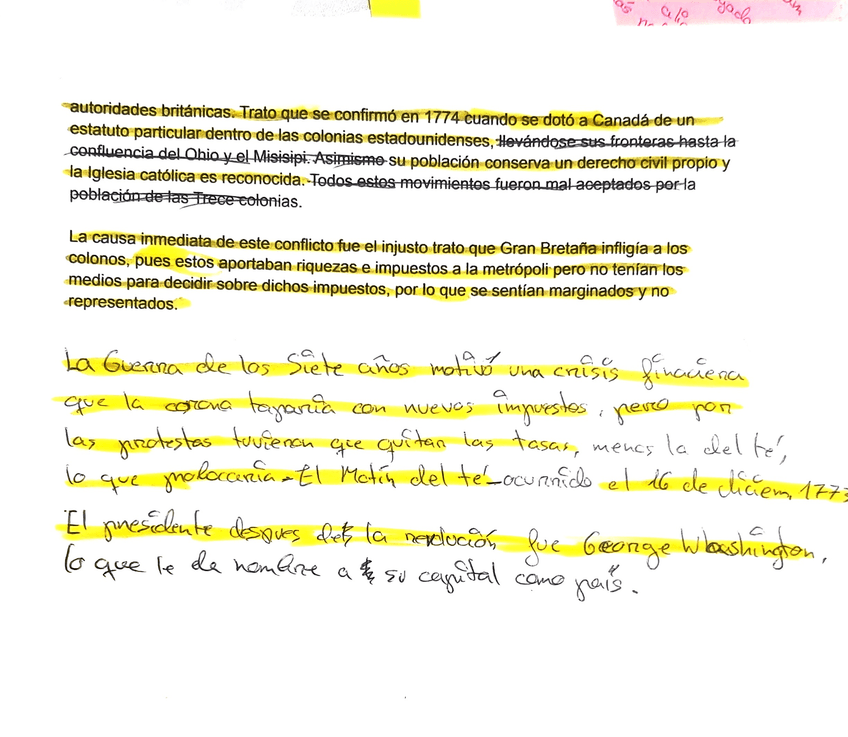 ás a lo yado am
no
autoridades británicas. Trato que se confirmó en 1774 cuando se dotó a Canadá de un
estatuto particular dentro de las colonias estadounidenses, llevándose sus fronteras hasta la
confluencia del Ohio y el Misisipi. Asimismo su población conserva un derecho civil propio y
la Iglesia católica es reconocida. Todos estos movimientos fueron mal aceptados por la
población de las Trece colonias.
La causa inmediata de este conflicto fue el injusto trato que Gran Bretaña infligía a los
colonos, pues estos aportaban riquezas e impuestos a la metrópoli pero no tenían los
medios para decidir sobre dichos impuestos, por lo que se sentían marginados y no
representados.
La Guerra de los Siete años motivó una crisis finaciera
que la corona taparía con nuevos impuestos, pero por
las protestas tuvieron que quitar las tasas, menos la del té,
lo que prolocaría - El Motín del té - ocurrido el 16 de diciem, 1773
El presidente despues de la revolución fue George Washington,
lo que le da nombre a su capital como país.